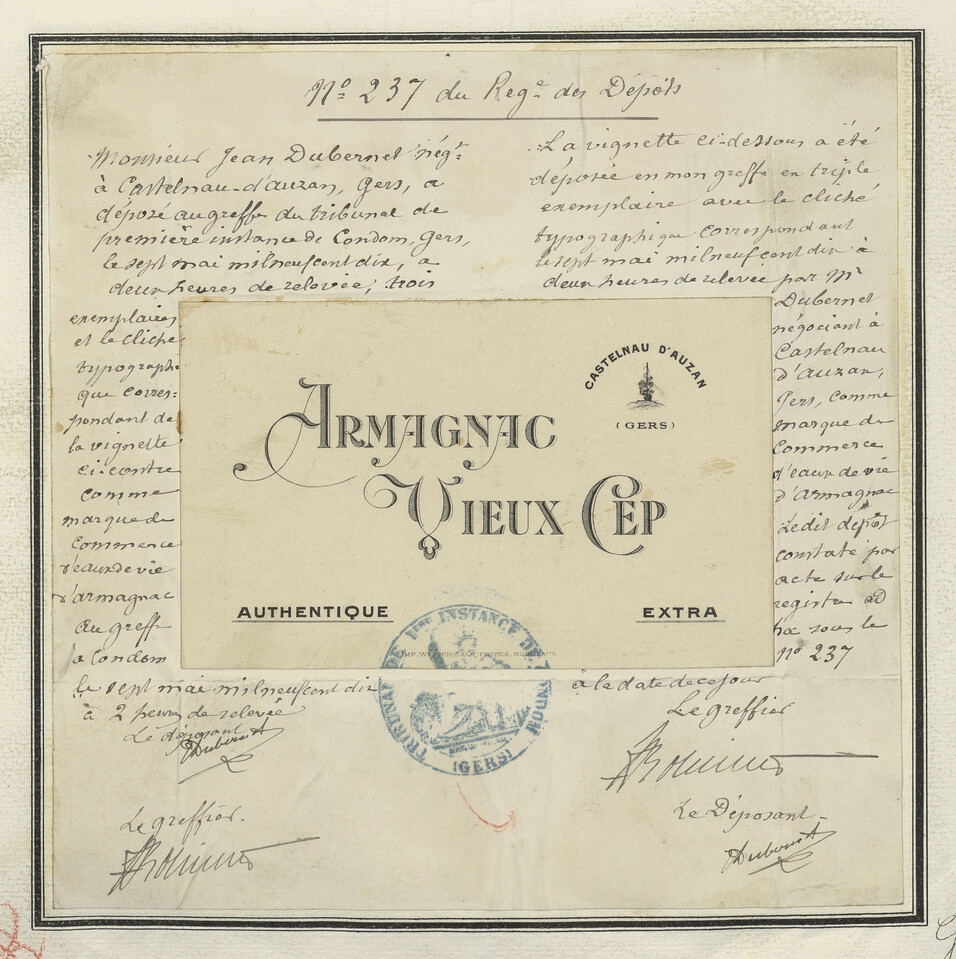 Nº 237 du Regᵉ des Dépôts
Monsieur Jean Dubernet négᵗ
à Castelnau-d'auzan, Gers, a
déposé au greffe du tribunal de
première instance de Condom, Gers,
le sept mai mil neuf cent dix, a
deux heures de relevée, trois
exemplaires
et le cliché
typographi
que corres=
pondant de
la vignette
ci-contre
comme
marque de
commerce
d'eaux de vie
d'armagnac
au greffe
a Condom
le sept mai mil neuf cent dix
à 2 heures de relevée
Le déposant
Dubernet
Le greffier.
La vignette ci-dessous a été
déposée en mon greffe en triple
exemplaire avec le cliché
typographique correspondant
le sept mai mil neuf cent dix à
deux heures de relevée par Mʳ
Dubernet
négociant à
Castelnau
d'auzan,
Gers, comme
marque de
commerce
d'eaux de vie
d'Armagnac
Le dit dépôt
constaté par
acte sur le
registre ad
hoc sous le
nº 237
a la date de ce jour
Le greffier
Le Déposant
Dubernet
CASTELNAU D'AUZAN
(GERS)
ARMAGNAC
VIEUX CEP
AUTHENTIQUE
EXTRA
TRIBUNAL DE 1ÈRE INSTANCE DE CONDOM
(GERS)